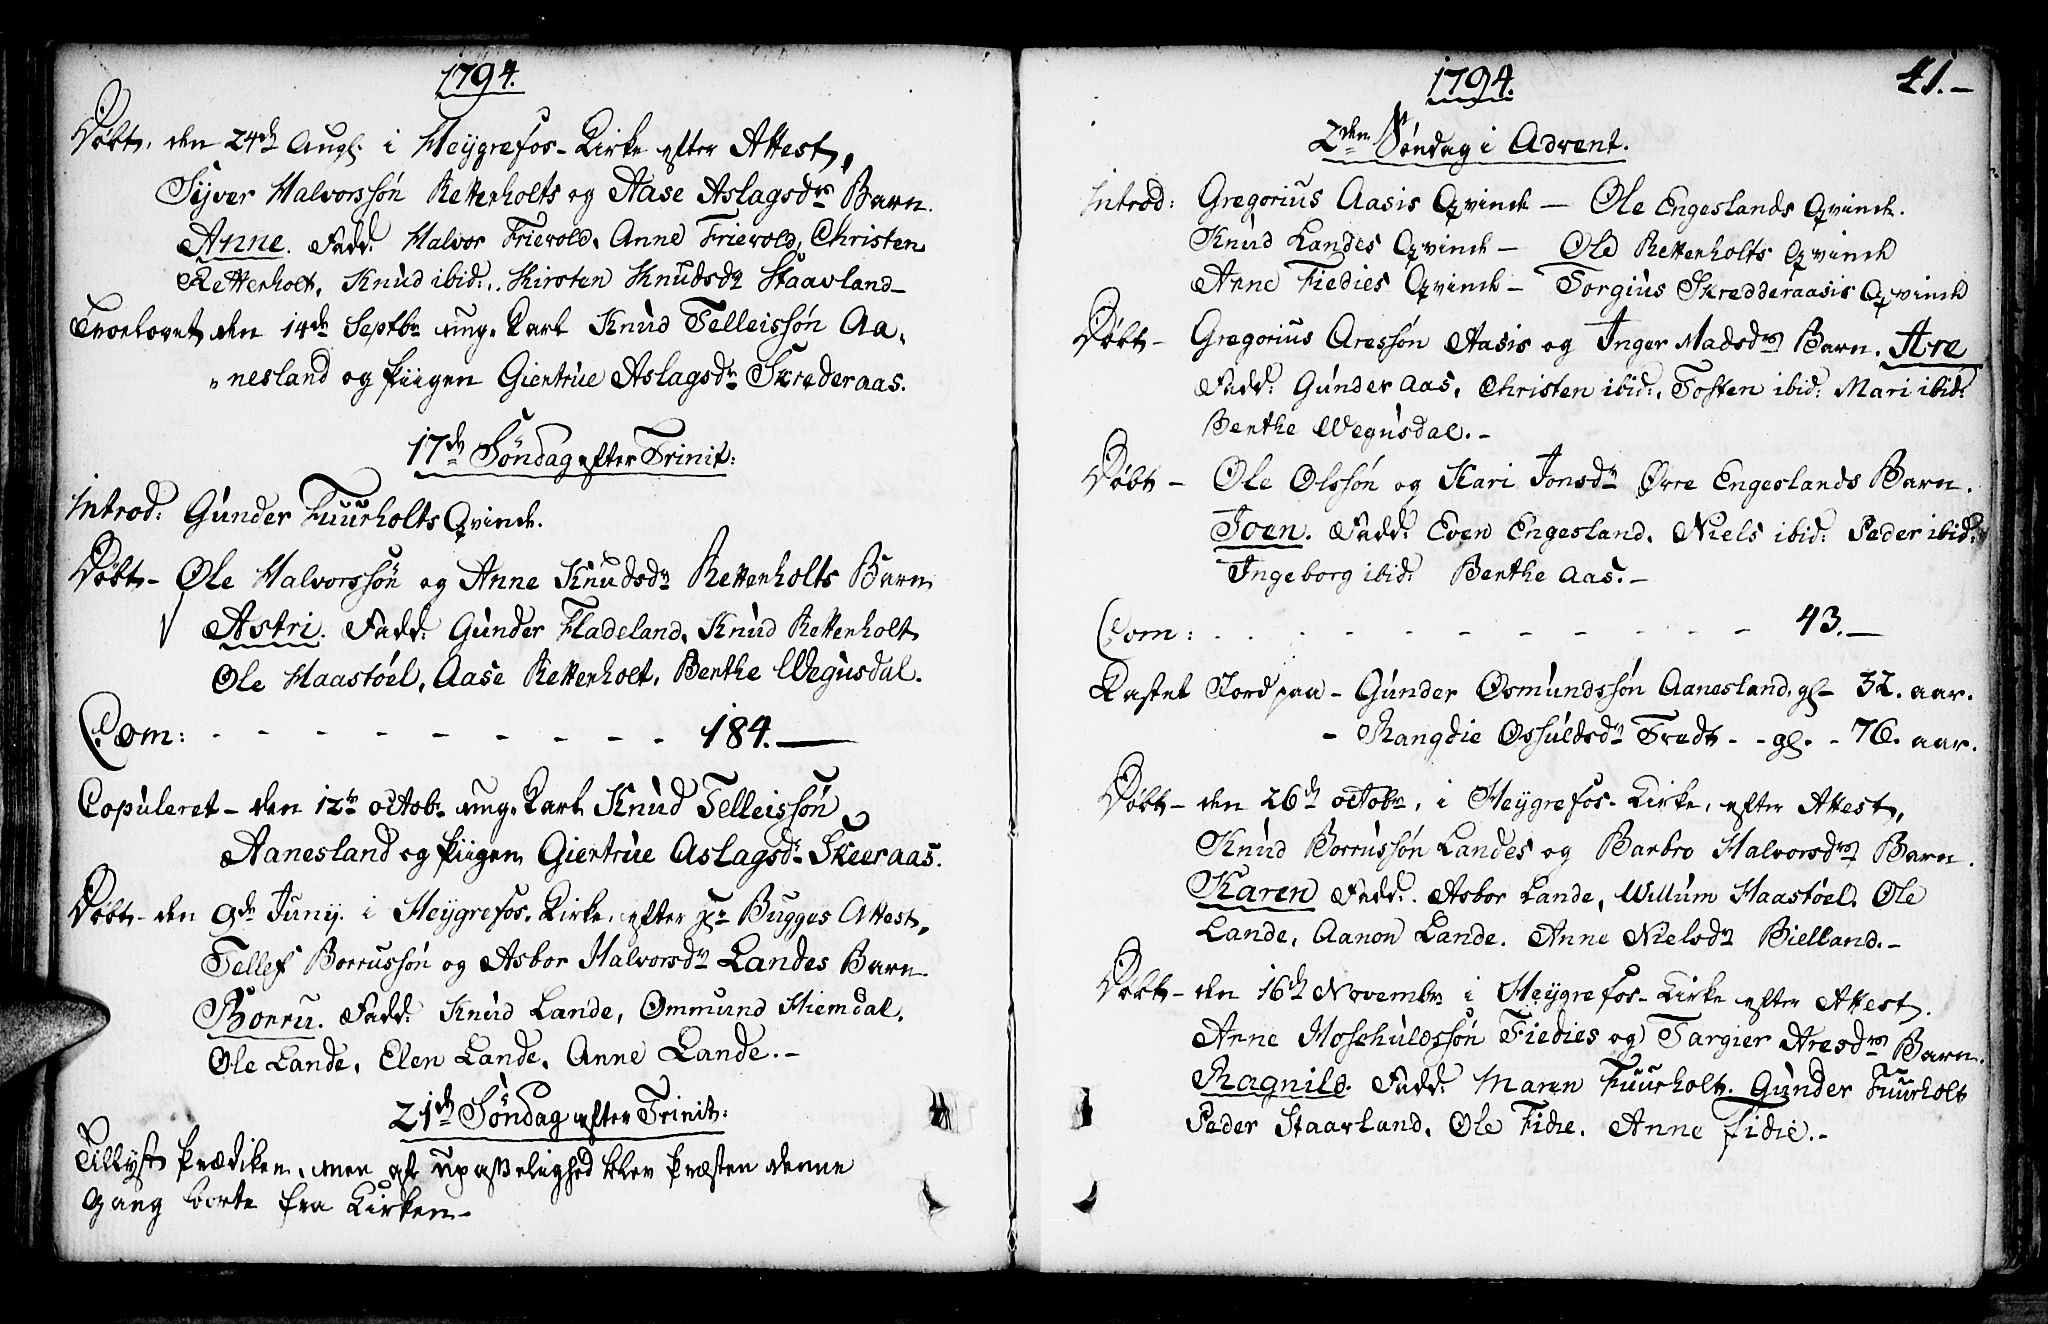 1794.
Døbt, den 24de Augs. i Heygrefos-Kirke efter Attest,
Syver Halvorssøn Rettenholts og Aase Aslagsdrs Barn.
Anne. Fadd: Halvor Trievold, Anne Trievold, Christen
Rettenholt, Knud ibid:, Kirsten Knudsdr Staavland-
Troelovet den 14de Septbr ung-Karl Knud Telleissøn Aa,
"nesland og Piigen Giertrue Aslagsdr Skrederaas.
17de Søndag efter Trinit:
Introd: Gunder Fuurholts Qvinde.
Døbt- Ole Halvorssøn og Anne Knudsdr Rettenholts Barn
Astri. Fadd: Gunder Fladeland, Knud Rettenholt
Ole Haastöel, Aase Rettenholt, Berthe Wegusdal.
Com: - - - - - - - - - - 184.-
Copuleret - den 12te octobr ung-Karl Knud Telleissøn
Aanesland og Piigen Giertrue Aslagsdr Skeeraas.
Døbt - den 9de Junij. i Heygrefos-Kirke, efter Hr Bugges Attest,
Tellef Borrussøn og Asbor Halvorsdr Landes Barn
Borru. Fadd: Knud Lande, Ommund Hiemdal,
Ole Lande, Elen Lande, Anne Lande.-
21de Søndag efter Trinit:
Tillyst Prædiken, men af Upasselighed blev Præsten denne
Gang borte fra Kirken-
1794.
41.-
2den Søndag i Advent.
Introd: Gregorius Aasis Qvinde - Ole Engeslands Qvinde.
Knud Landes Qvinde - Ole Rettenholts Qvinde
Anne Fiedies Qvinde - Torgius Skredderaasis Qvinde
Døbt - Gregorius Aressøn Aasis og Inger Madsdrs Barn. Are
Fadd: Gunder Aas, Christen ibid:, Tosten ibid: Mari ibid:
Berthe Wegusdal.-
Døbt - Ole Olssøn og Kari Jonsdr Øvre Engeslands Barn.
Joen. Fadd: Even Engesland, Niels ibid: Peder ibid:
Ingeborg ibid: Berthe Aas.-
Com: - - - - - - - - - - 43.-
Kastet Jord paa - Gunder Osmundssøn Aanesland, gl- 32. aar.
- Rangdie Ossuldsdr Tredt - - gl. - 76. aar.
Døbt - den 26de octobr, i Heygrefos-Kirke, efter Attest,
Knud Borrussøn Landes og Barbro Halvorsdrs Barn.
Karen Fadd: Asbor Lande, Willum Haastöel, Ole
Lande, Aanon Lande. Anne Nielsdr Bielland.-
Døbt - den 16de Novembr i Heygrefos-Kirke efter Attest.
Anne Hoschuldssøn Fiedies og Targier Aresdrs Barn.
Ragnild. Fadd: Maren Fuurholt. Gunder Fuurholt
Peder Staavland, Ole Fidie, Anne Fidie.-